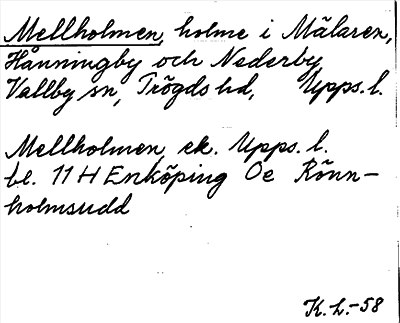 Mellholmen, holme i Mälaren,
Hånningby och Nederby,
Vallby sn, Trögds hd, Upps. l.
Mellholmen, ek. Upps. l.
bl. 11 H Enköping Oe Rönn-
holmsudd
K.L.-58